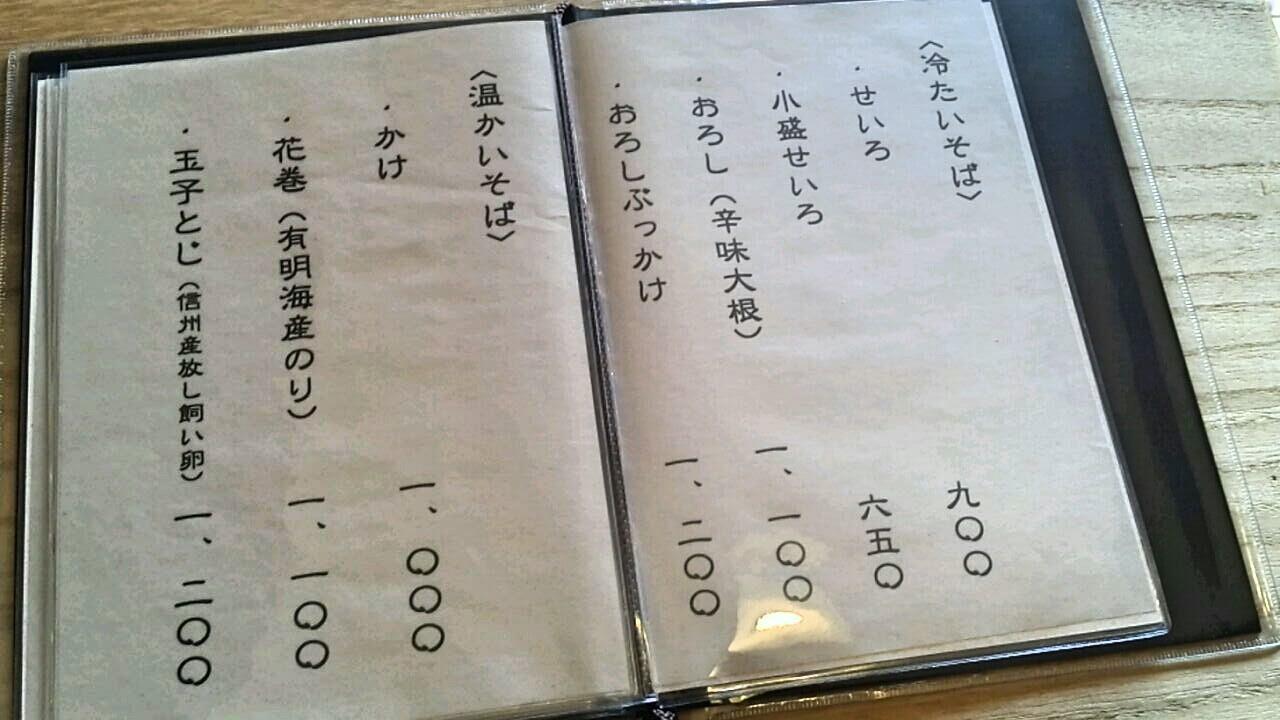 〈冷たいそば〉
・せいろ 九〇〇
・小盛せいろ 六五〇
・おろし（辛味大根） 一、一〇〇
・おろしぶっかけ 一、二〇〇
〈温かいそば〉
・かけ 一、〇〇〇
・花巻（有明海産のり） 一、一〇〇
・玉子とじ（信州産放し飼い卵） 一、二〇〇